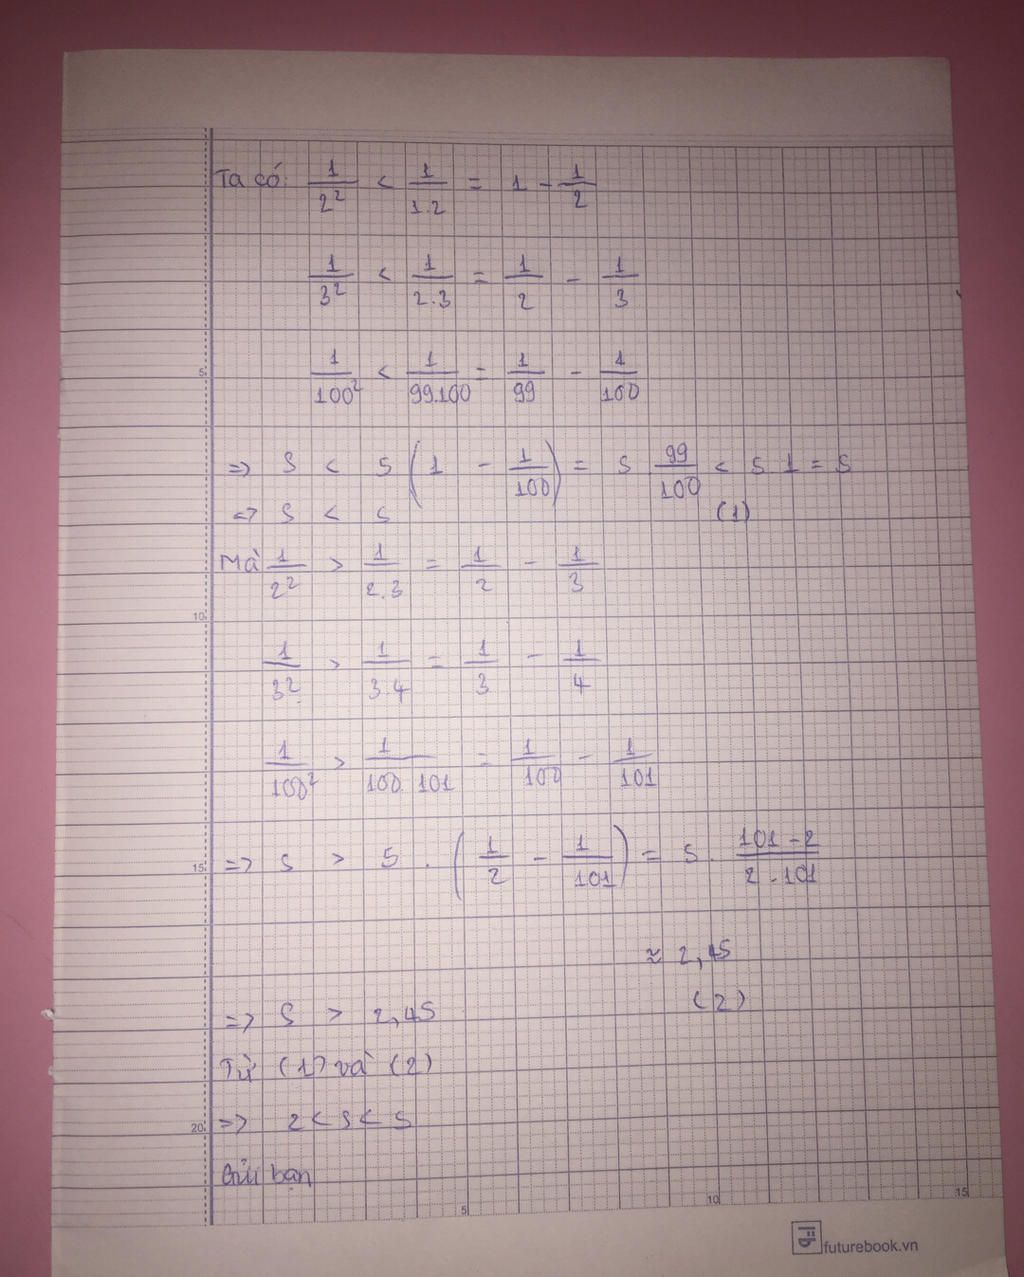 Ta có: 1/2² < 1/1.2 = 1 - 1/2
1/3² < 1/2.3 = 1/2 - 1/3
5
1/100² < 1/99.100 = 1/99 - 1/100
=> S < 5 (1 - 1/100) = 5 99/100 < 5 1 = 5
=> S < 5 (1)
Mà 1/2² > 1/2.3 = 1/2 - 1/3
10
1/3² > 1/3.4 = 1/3 - 1/4
1/100² > 1/100.101 = 1/100 - 1/101
15 => S > 5 . (1/2 - 1/101) = 5 . 101-2/2.101
≈ 2,45
(2)
=> S > 2,45
Từ (1) và (2)
20 => 2 < S < 5
Gửi bạn
5 10 15
futurebook.vn